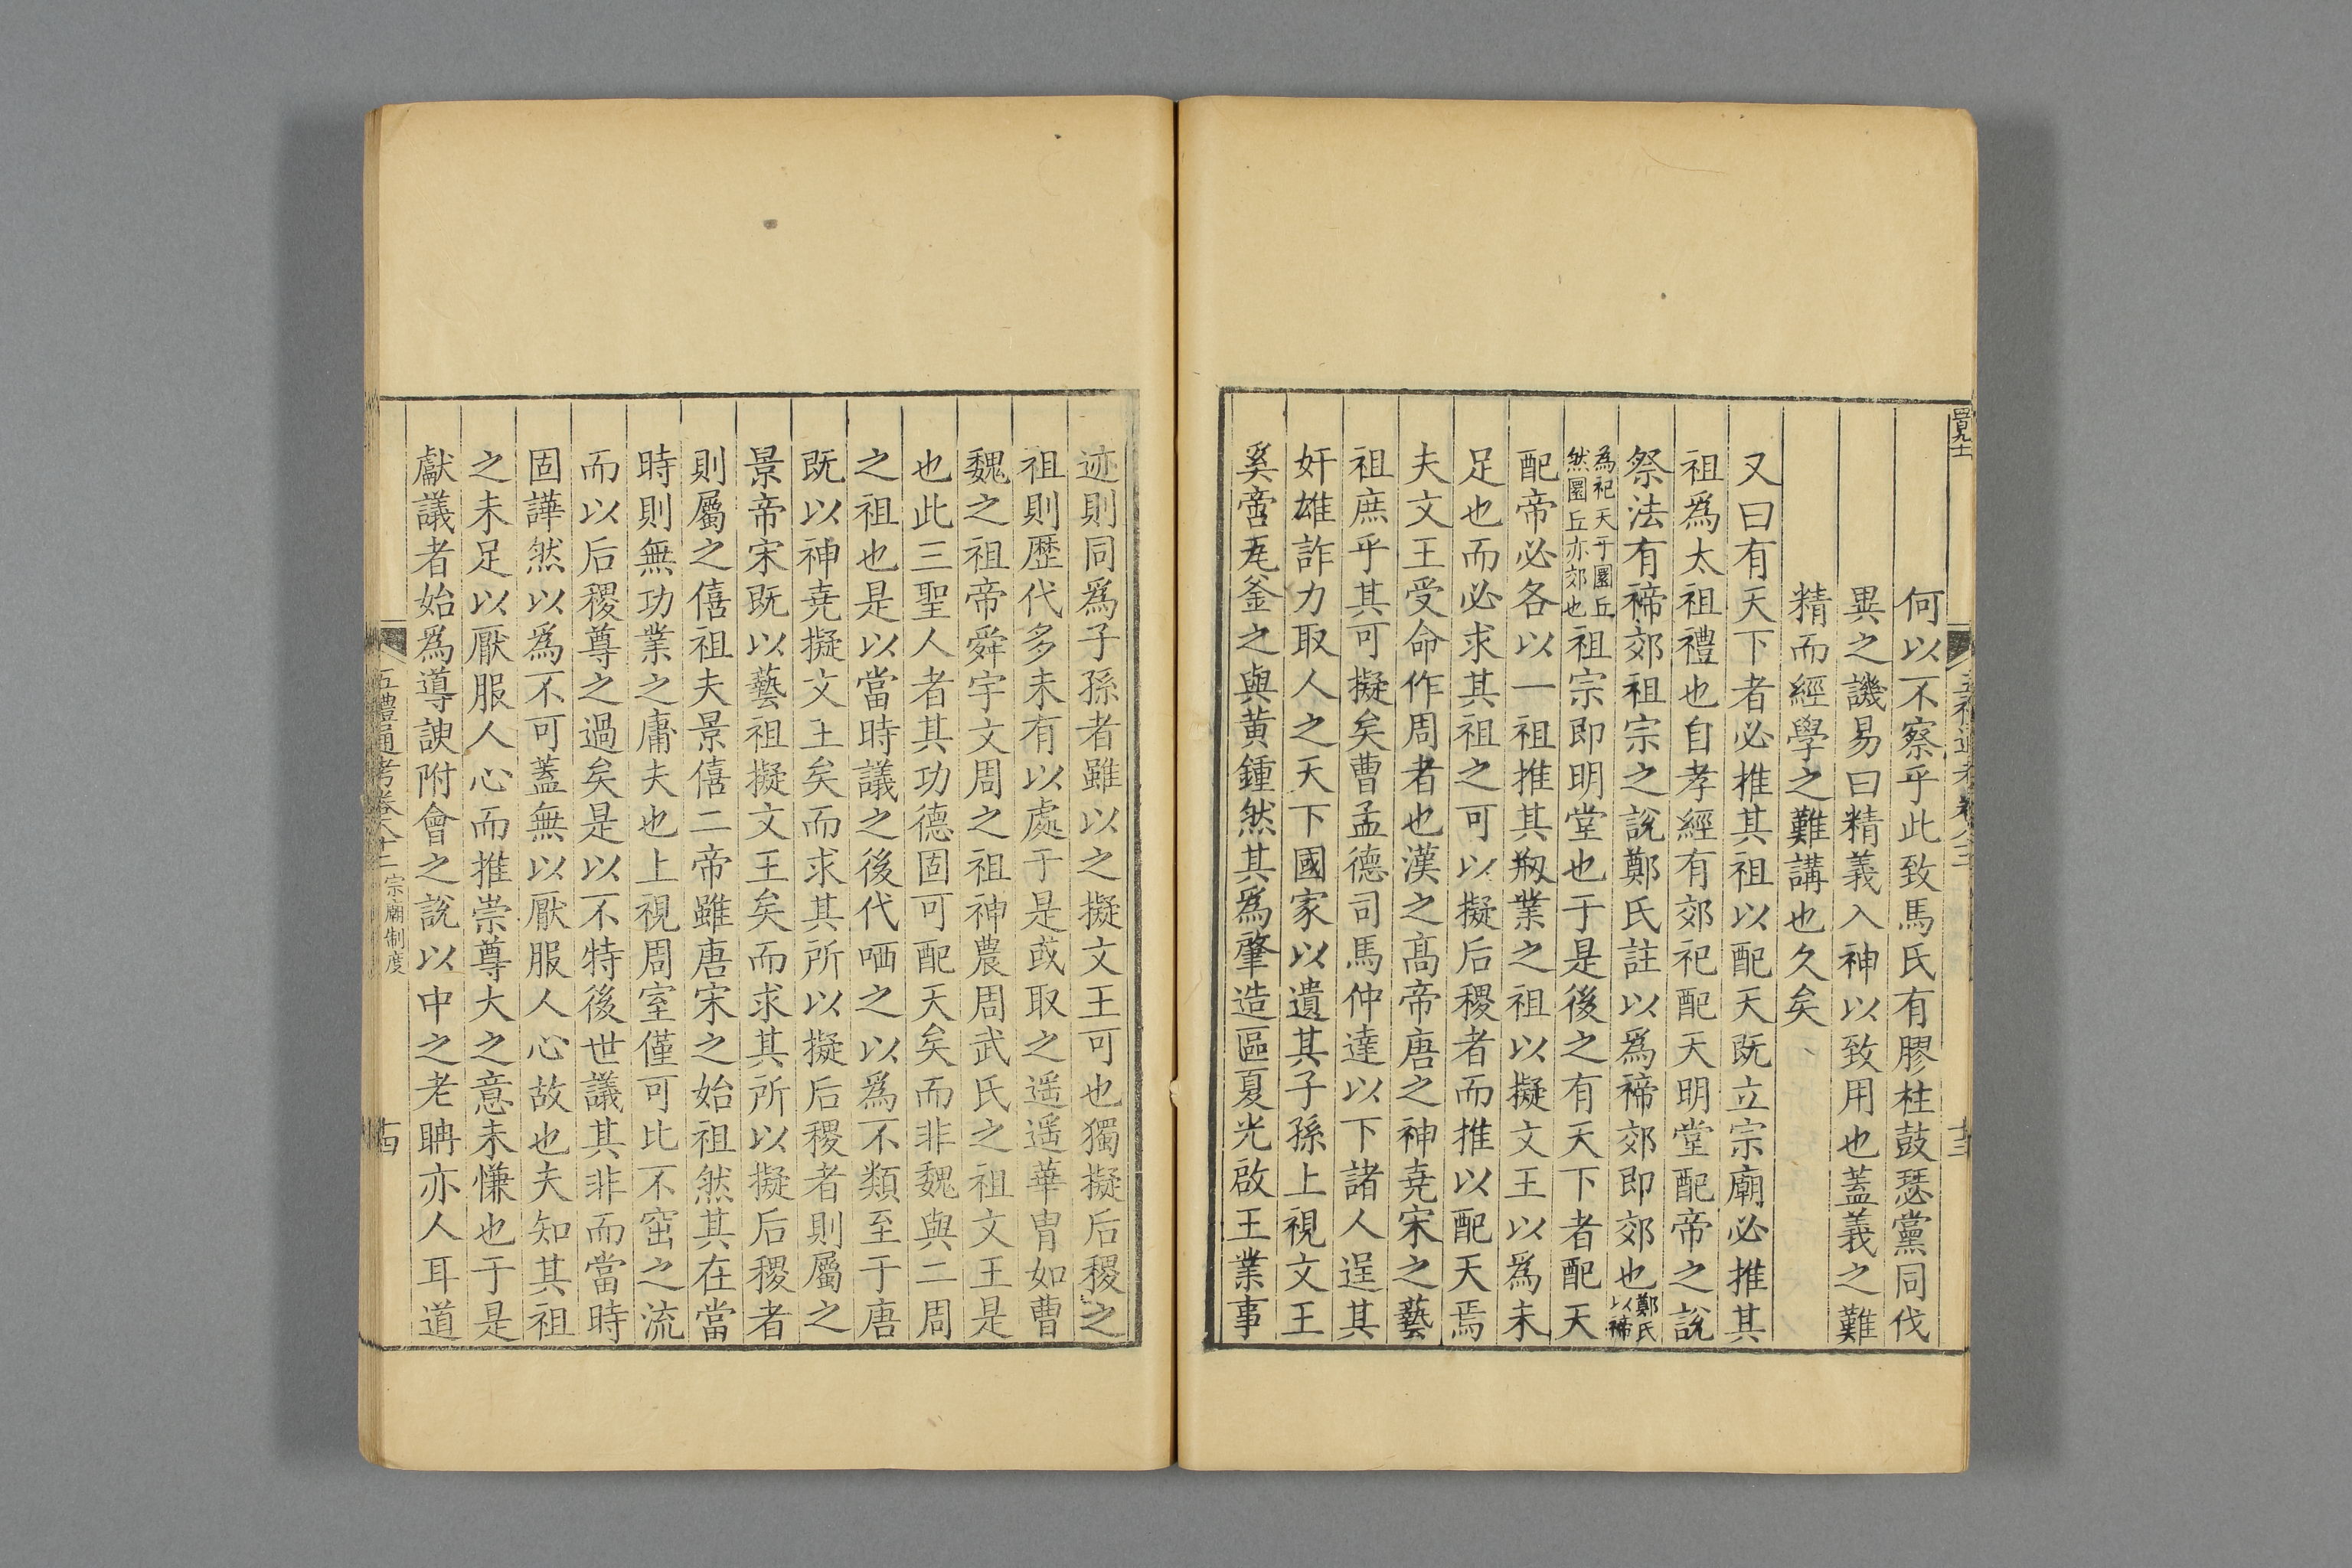 何以不察乎此致馬氏有膠柱鼓瑟黨同伐
異之譏易曰精義入神以致用也蓋義之難
精而經學之難講也久矣
又曰有天下者必推其祖以配天既立宗廟必推其
祖爲太祖禮也自孝經有郊祀配天明堂配帝之說
祭法有禘郊祖宗之說鄭氏註以爲禘郊即郊也鄭氏以禘
為祀天于圜丘然圜丘亦郊也祖宗即明堂也于是後之有天下者配天
配帝必各以一祖推其剙業之祖以擬文王以為未
足也而必求其祖之可以擬后稷者而推以配天焉
夫文王受命作周者也漢之髙帝唐之神堯宋之藝
祖庶乎其可擬矣曹孟德司馬仲達以下諸人逞其
奸雄詐力取人之天下國家以遺其子孫上視文王
奚啻瓦釜之與黄鍾然其爲肇造區夏光啟王業事
迹則同爲子孫者雖以之擬文王可也獨擬后稷之
祖則歴代多未有以處于是或取之遥遥華冑如曹
魏之祖帝舜宇文周之祖神農周武氏之祖文王是
也此三聖人者其功德固可配天矣而非魏與二周
之祖也是以當時議之後代哂之以爲不類至于唐
既以神堯擬文王矣而求其所以擬后稷者則屬之
景帝宋既以藝祖擬文王矣而求其所以擬后稷者
則屬之僖祖夫景僖二帝雖唐宋之始祖然其在當
時則無功業之庸夫也上視周室僅可比不窋之流
而以后稷尊之過矣是以不特後世議其非而當時
固譁然以爲不可蓋無以厭服人心故也夫知其祖
之未足以厭服人心而推崇尊大之意未慊也于是
獻議者始爲導諛附會之說以中之老聃亦人耳道
五禮通考卷八十二 宗廟制度 十四